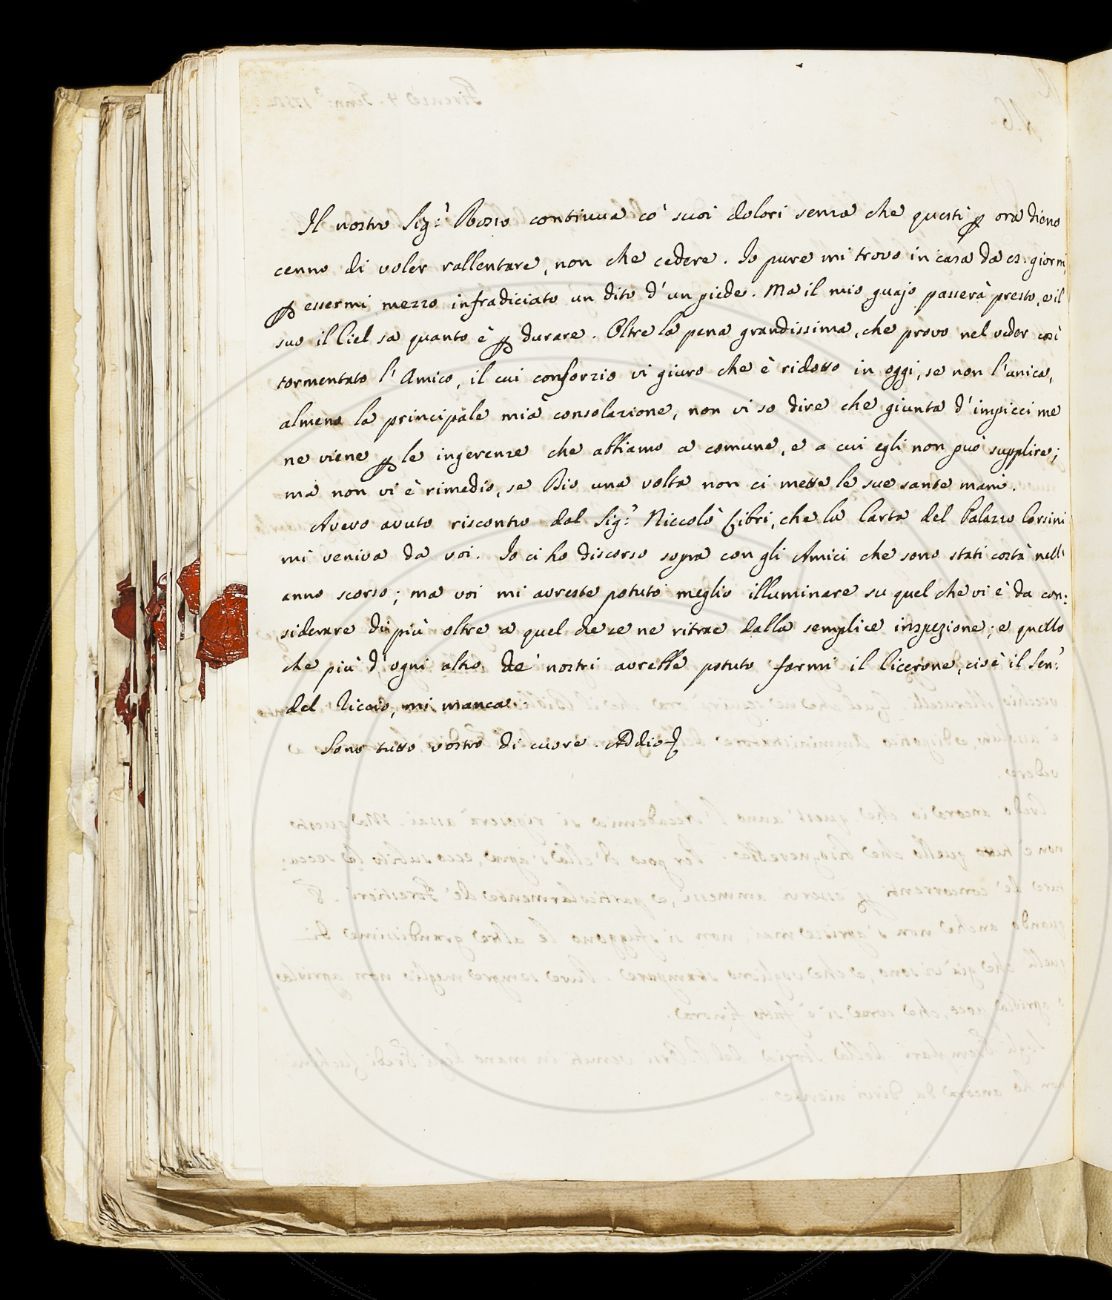 Il nostro Sig.r continua co' suoi dolori senza che questi p ora dieno
cenno di voler rallentare, non che cedere. Io pure mi trovo in casa da giorni
p essermi mezzo infradiciato un dito d'un piede. Ma il mio guajo passerà presto, e il
suo il Ciel sa quanto è p durare. Oltre la pena grandissima, che provo nel veder così
tormentato l'Amico, il cui consorzio vi giuro che è ridotto in oggi, se non l'unica,
almeno la principale mia consolazione, non vi so dire che giunta d'impicci me
ne viene p le ingerenze che abbiamo a comune, e a cui egli non può supplire;
ma non vi è rimedio, se Dio una volta non ci mette le sue sante mani.
Avevo avuto riscontro dal Sig.r Niccolò Libri, che la Carta del Palazzo Corsini
mi veniva da voi. Io ci ho discorso sopra con gli Amici che sono stati costà nell'
anno scorso; ma voi mi avreste potuto meglio illuminare su quel che vi è da con:
siderare di più oltre a quel che se ne ritrae dalla semplice inspezione; e quello
che più d'ogni altro de' nostri avrebbe potuto farmi il Cicerone, cioè il Sen.r
del Riccio, mi manca.
Sono tutto vostro di cuore. Addio